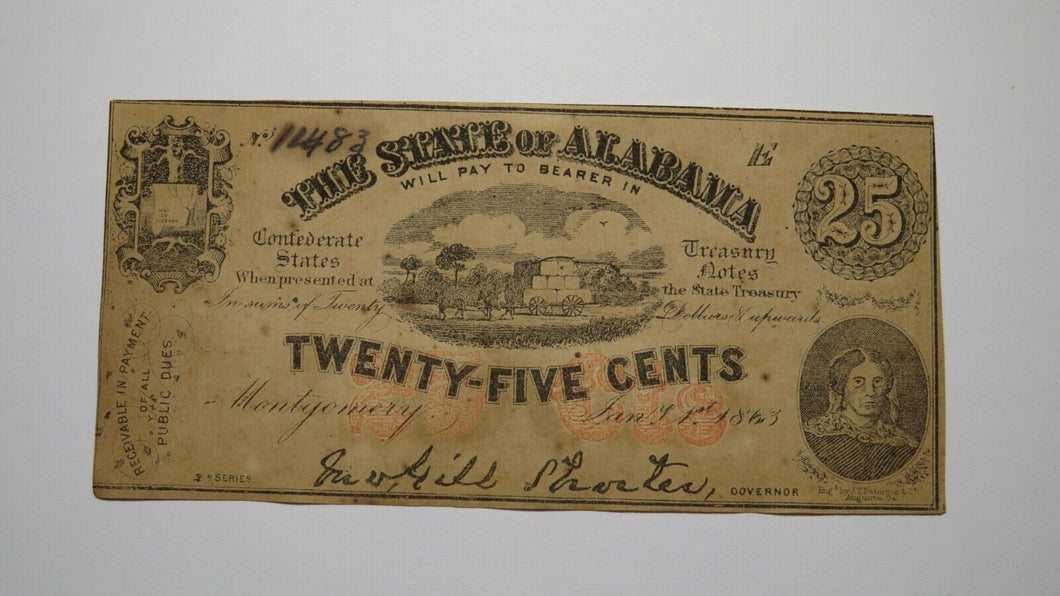 No. 11483
THE STATE OF ALABAMA
E
WILL PAY TO BEARER IN
25
Confederate States
Treasury Notes
When presented at the State Treasury
In sums of Twenty Dollars & upwards
TWENTY-FIVE CENTS
25 CTS
Montgomery Jany. 1st 1863
RECEIVABLE IN PAYMENT
OF ALL
PUBLIC DUES
2D SERIES
GOVERNOR
Engd. by J.T. Paterson & Co.
Augusta, Ga.